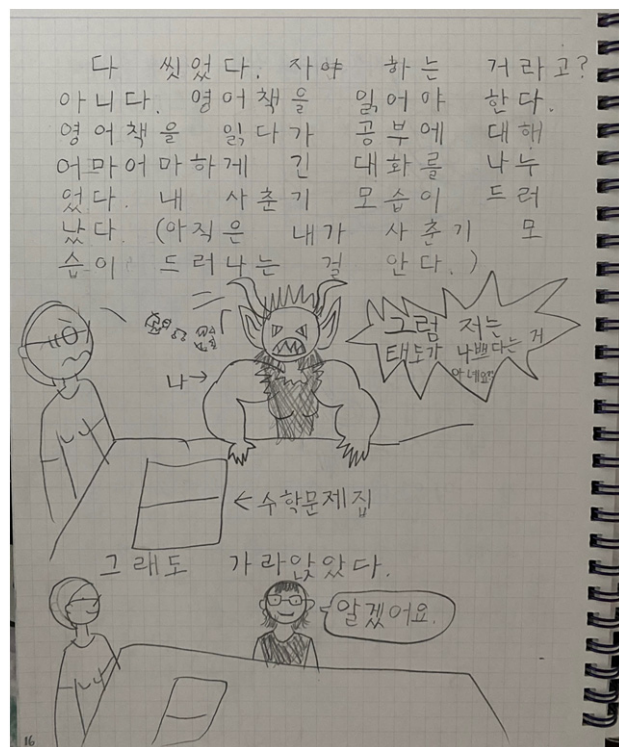 다 씻었다. 자야 하는 거라고?
아니다. 영어책을 읽어야 한다.
영어책을 읽다가 공부에 대해
어마어마하게 긴 대화를 나누
었다. 내 사춘기 모습이 드러
났다. (아직은 내가 사춘기 모
습이 드러나는 걸 안다.)
그럼 저는
태도가 나쁘다는 거
아네요?
나→
←수학문제집
그래도 가라앉았다.
알겠어요.
16